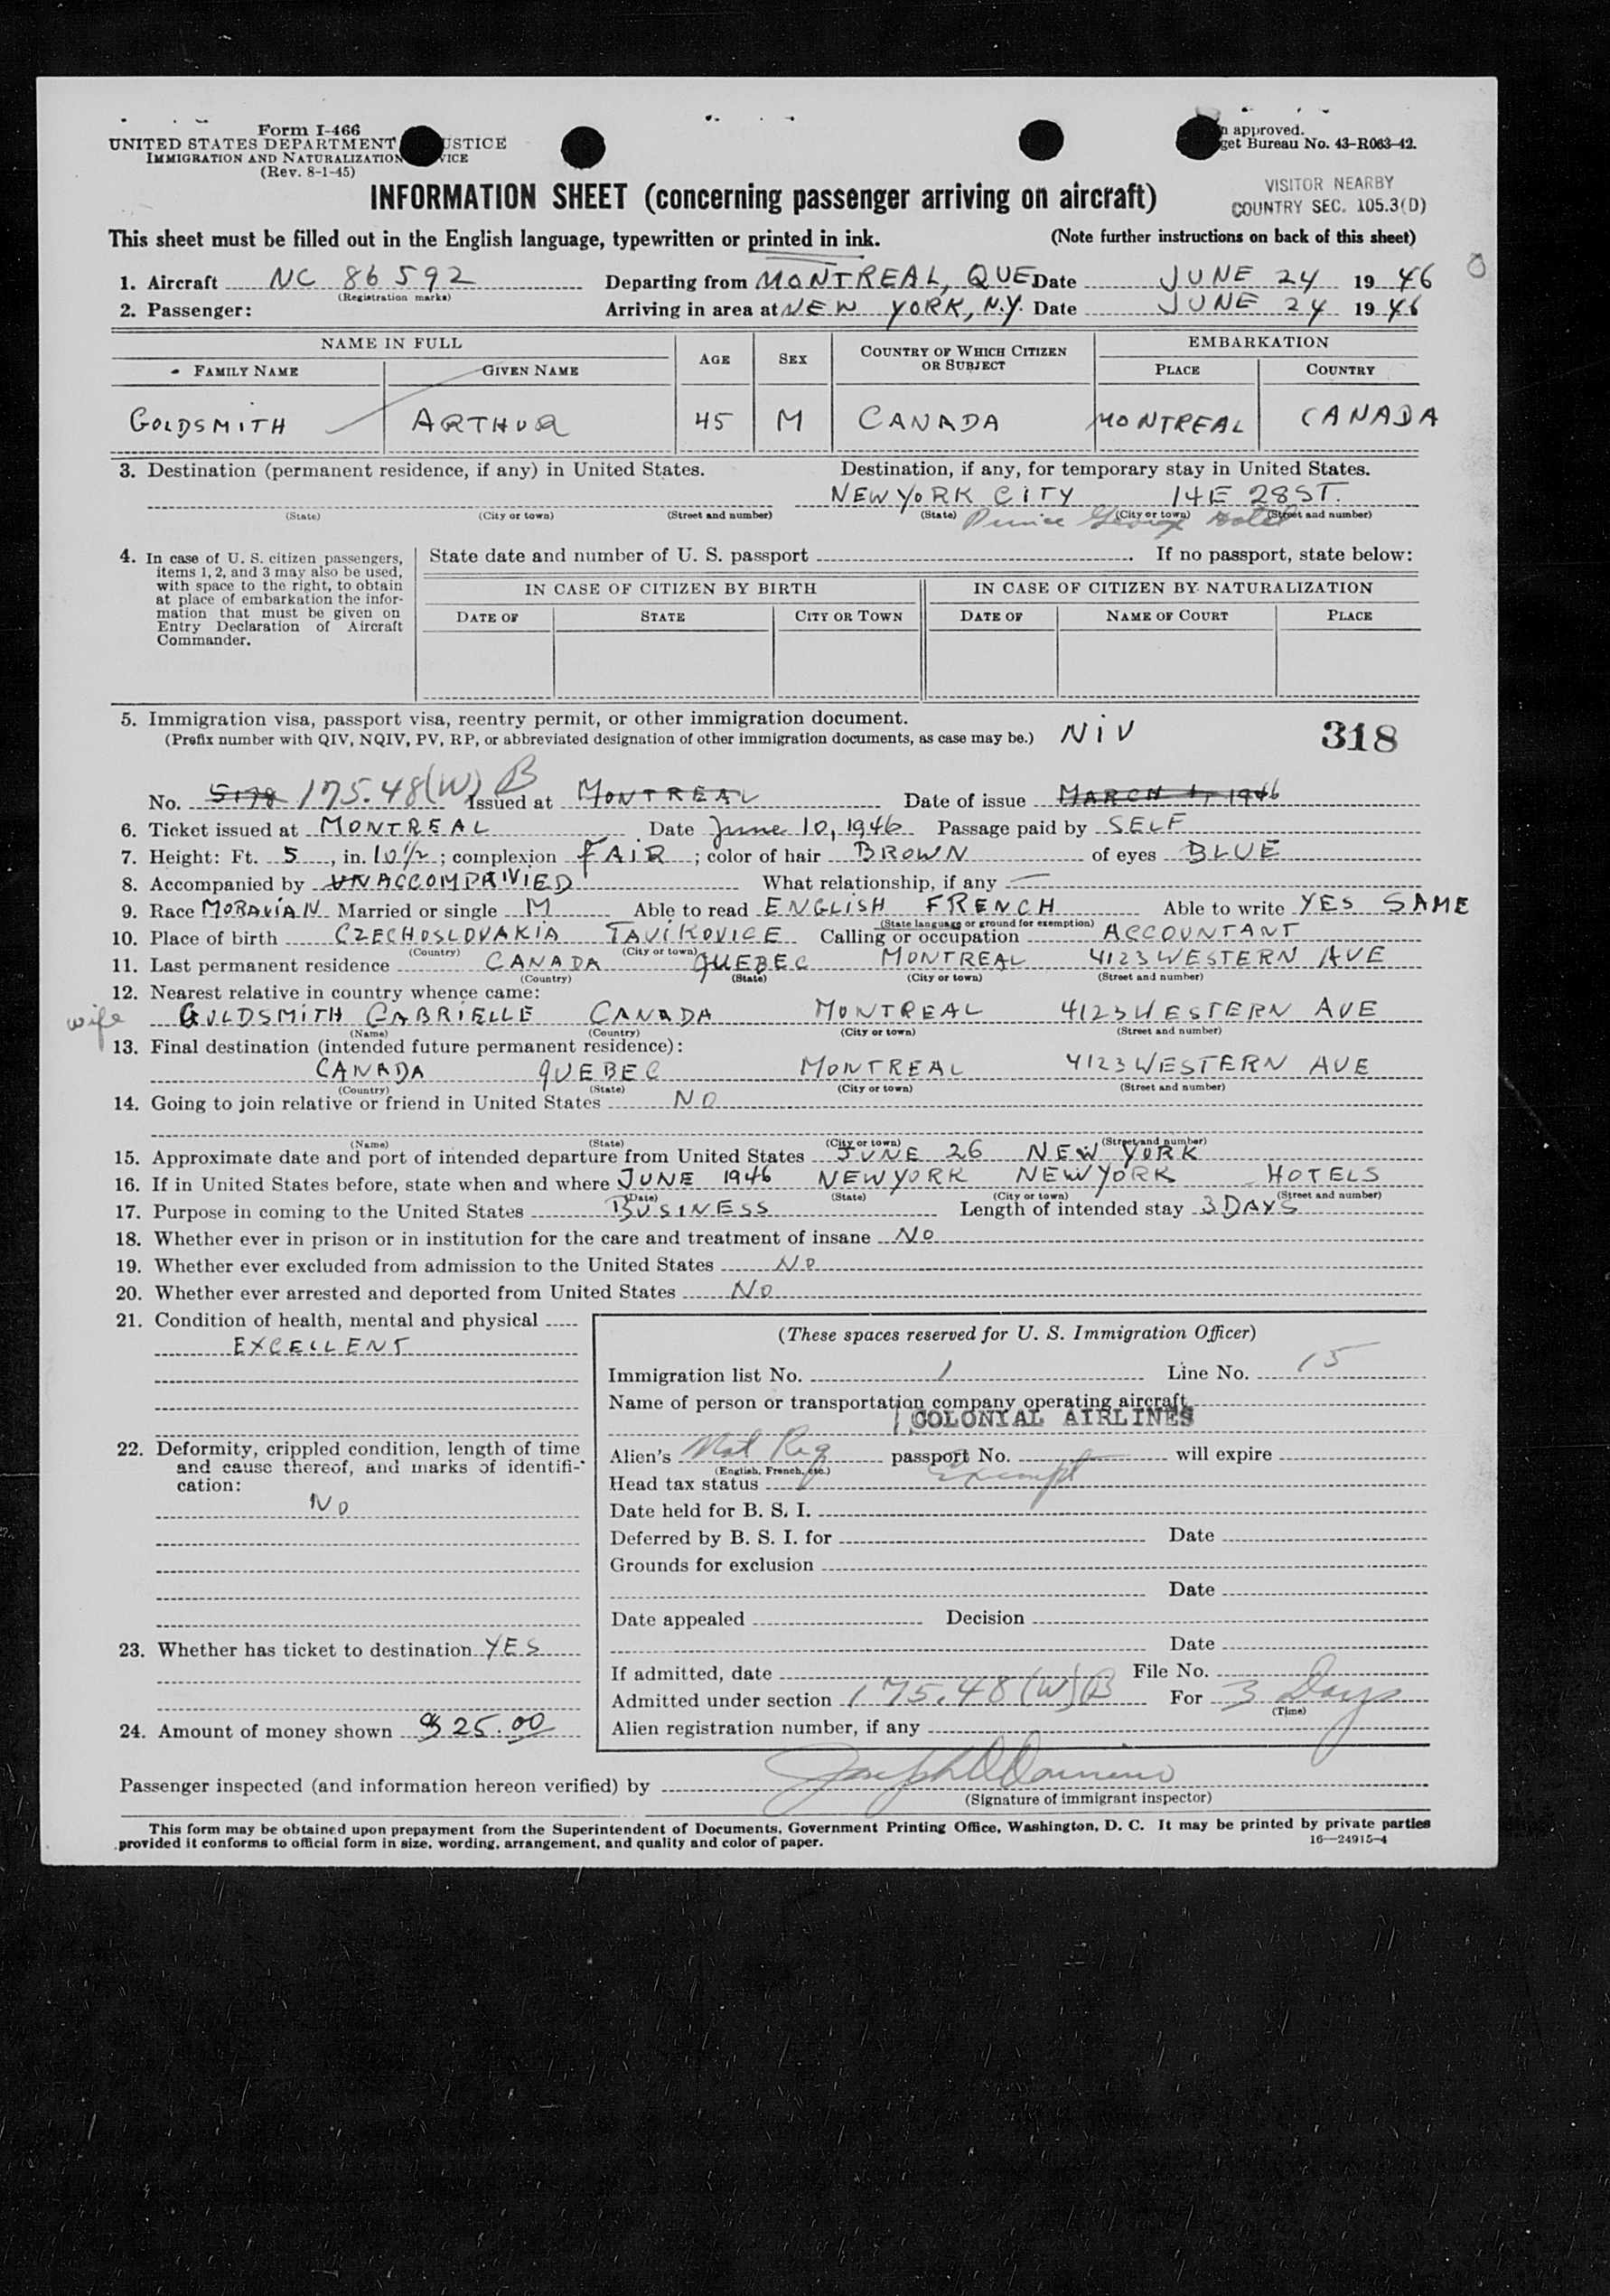 Form I-466
UNITED STATES DEPARTMENT USTICE
IMMIGRATION AND NATURALIZATION VICE
(Rev. 8-1-45)
approved.
get Bureau No. 43-R063-42.
VISITOR NEARBY
COUNTRY SEC. 105.3(D)
INFORMATION SHEET (concerning passenger arriving on aircraft)
This sheet must be filled out in the English language, typewritten or printed in ink. (Note further instructions on back of this sheet)
1. Aircraft NC 86592 Departing from MONTREAL, QUE Date JUNE 24 19 46
(Registration marks)
2. Passenger: Arriving in area at NEW YORK, N.Y. Date JUNE 24 19 46
NAME IN FULL AGE SEX COUNTRY OF WHICH CITIZEN OR SUBJECT EMBARKATION
FAMILY NAME GIVEN NAME PLACE COUNTRY
GOLDSMITH ARTHUR 45 M CANADA MONTREAL CANADA
3. Destination (permanent residence, if any) in United States. Destination, if any, for temporary stay in United States.
NEW YORK CITY 14E 28 ST.
(State) (City or town) (Street and number) (State) (City or town) (Street and number)
Prince George Hotel
4. In case of U. S. citizen passengers, items 1, 2, and 3 may also be used, with space to the right, to obtain at place of embarkation the information that must be given on Entry Declaration of Aircraft Commander.
State date and number of U. S. passport . If no passport, state below:
IN CASE OF CITIZEN BY BIRTH IN CASE OF CITIZEN BY NATURALIZATION
DATE OF STATE CITY OR TOWN DATE OF NAME OF COURT PLACE
5. Immigration visa, passport visa, reentry permit, or other immigration document.
(Prefix number with QIV, NQIV, PV, RP, or abbreviated designation of other immigration documents, as case may be.) NIV 318
No. 175.48(W) B Issued at MONTREAL Date of issue MARCH 1, 1946
6. Ticket issued at MONTREAL Date June 10, 1946 Passage paid by SELF
7. Height: Ft. 5, in. 10 1/2; complexion FAIR; color of hair BROWN of eyes BLUE
8. Accompanied by UNACCOMPANIED What relationship, if any —
9. Race MORAVIAN Married or single M Able to read ENGLISH FRENCH Able to write YES SAME
(State language or ground for exemption)
10. Place of birth CZECHOSLOVAKIA TAVIKOVICE Calling or occupation ACCOUNTANT
(Country) (City or town)
11. Last permanent residence CANADA QUEBEC MONTREAL 4123 WESTERN AVE
(Country) (State) (City or town) (Street and number)
12. Nearest relative in country whence came:
wife GOLDSMITH GABRIELLE CANADA MONTREAL 4123 WESTERN AVE
(Name) (Country) (City or town) (Street and number)
13. Final destination (intended future permanent residence):
CANADA QUEBEC MONTREAL 4123 WESTERN AVE
(Country) (State) (City or town) (Street and number)
14. Going to join relative or friend in United States NO
(Name) (State) (City or town) (Street and number)
15. Approximate date and port of intended departure from United States JUNE 26 NEW YORK
16. If in United States before, state when and where JUNE 1946 NEW YORK NEW YORK HOTELS
(Date) (State) (City or town) (Street and number)
17. Purpose in coming to the United States BUSINESS Length of intended stay 3 DAYS
18. Whether ever in prison or in institution for the care and treatment of insane NO
19. Whether ever excluded from admission to the United States NO
20. Whether ever arrested and deported from United States NO
21. Condition of health, mental and physical
EXCELLENT
22. Deformity, crippled condition, length of time and cause thereof, and marks of identification:
NO
23. Whether has ticket to destination YES
24. Amount of money shown $25.00
(These spaces reserved for U. S. Immigration Officer)
Immigration list No. 1 Line No. 15
Name of person or transportation company operating aircraft
COLONIAL AIRLINES
Alien's Nat Reg passport No. — will expire
(English, French, etc.)
Head tax status Exempt
Date held for B. S. I.
Deferred by B. S. I. for Date
Grounds for exclusion
Date
Date appealed Decision
Date
If admitted, date File No.
Admitted under section 175.48(W)B For 3 Days
(Time)
Alien registration number, if any
Passenger inspected (and information hereon verified) by
(Signature of immigrant inspector)
This form may be obtained upon prepayment from the Superintendent of Documents, Government Printing Office, Washington, D. C. It may be printed by private parties
provided it conforms to official form in size, wording, arrangement, and quality and color of paper. 16—24915-4